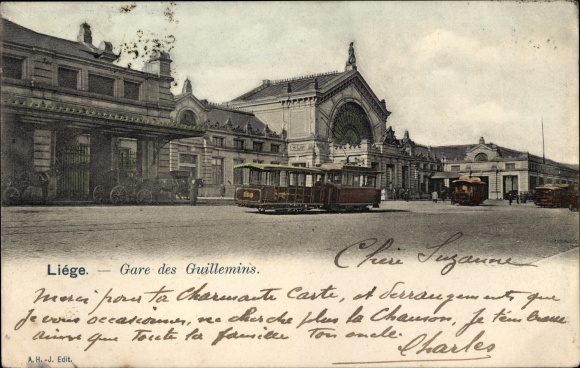 Liége. — Gare des Guillemins.
Chère Suzanne
Merci pour ta charmante Carte, et derrangements que
je vous occasionne, ne cherche plus la Chanson, je t'embrasse
ainsi que toute la famille ton oncle.
Charles
A. H. - J. Edit.